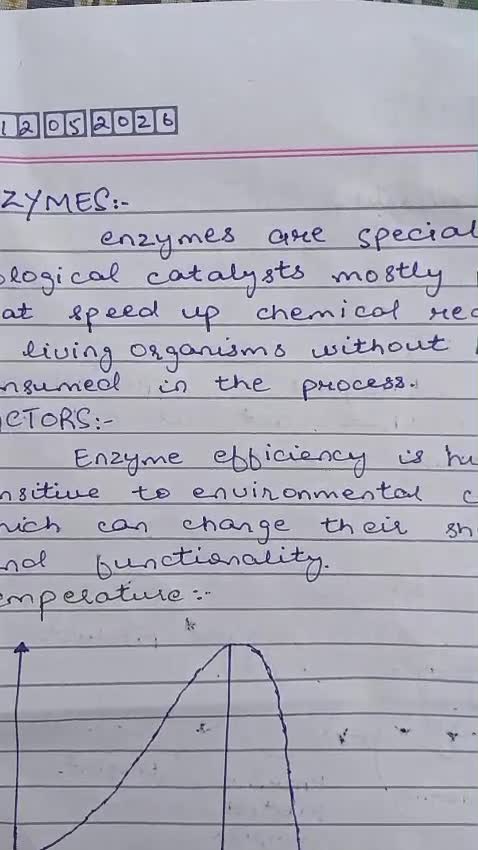 12052026
ZYMES:-
enzymes are special
ological catalysts mostly
at speed up chemical rea
living organisms without
nsumed in the process.
CTORS:-
Enzyme efficiency is hi
nsitive to environmental c
hich can change their sh
nd functionality.
emperature:-